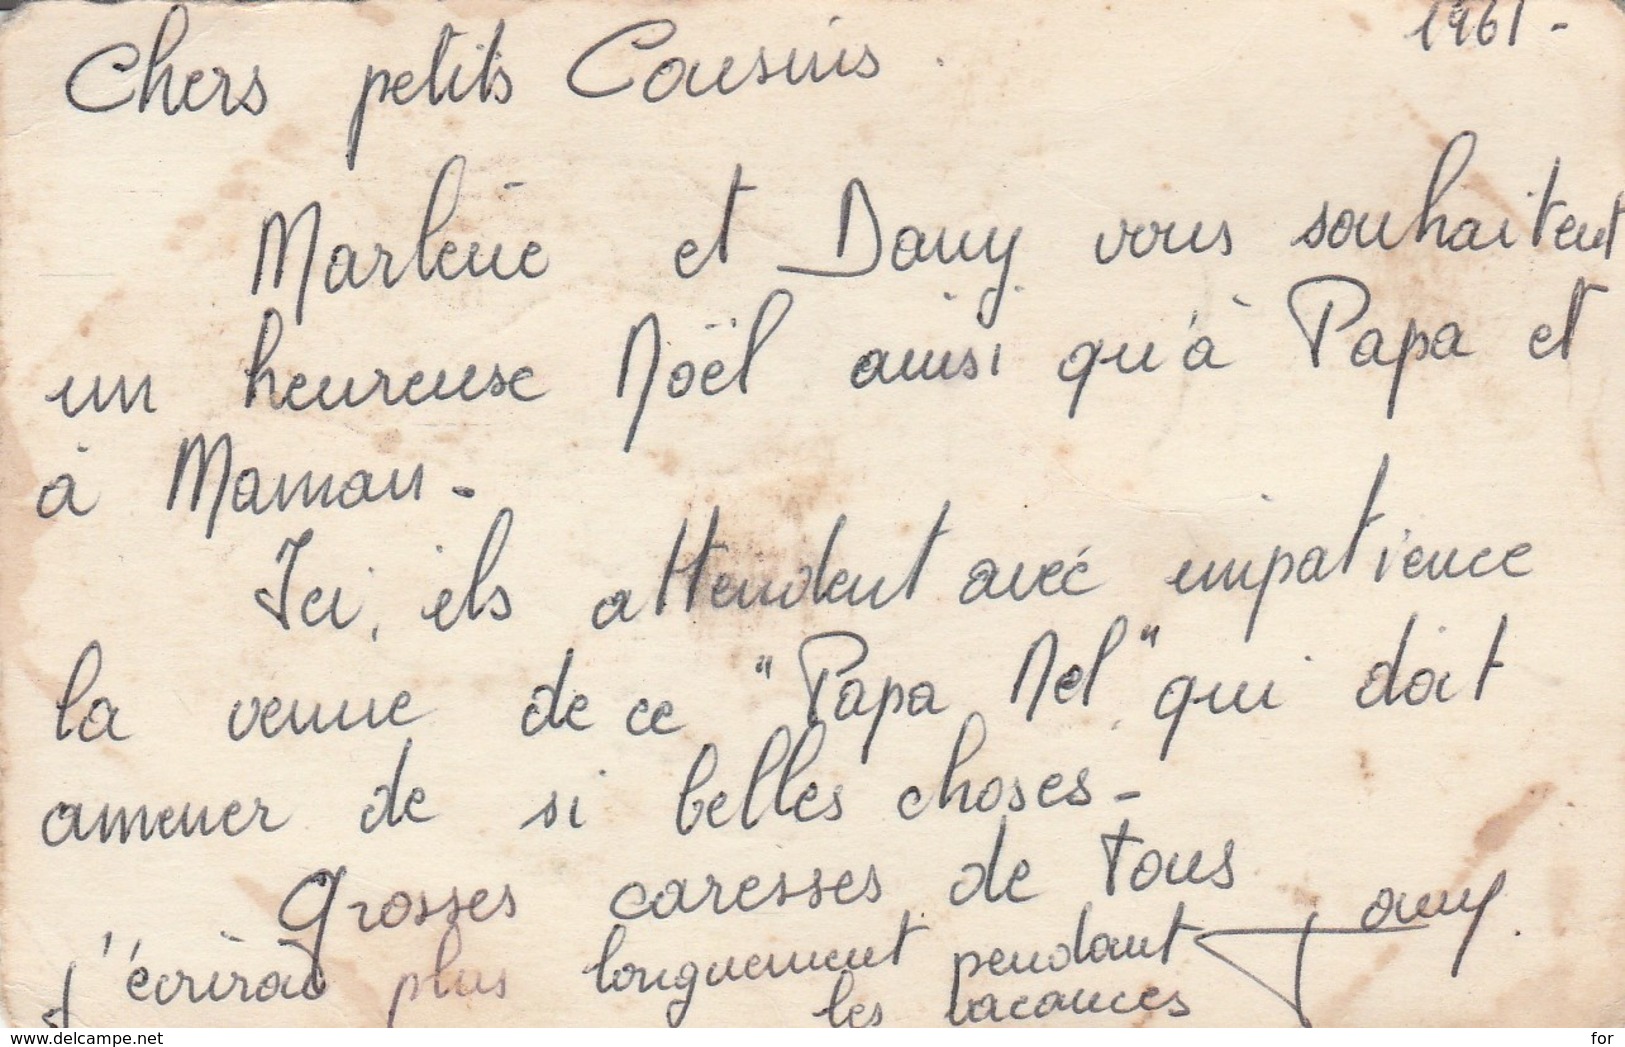 1961 -
Chers petits Cousins.
Marlène et Dany vous souhaitent
un heureuse Noël ainsi qu'à Papa et
à Maman -
Ici, ils attendent avec impatience
la venue de ce "Papa Nel" qui doit
amener de si belles choses -
Grosses caresses de tous
J'écrirai plus longuement pendant
les vacances
www.delcampe.net
for